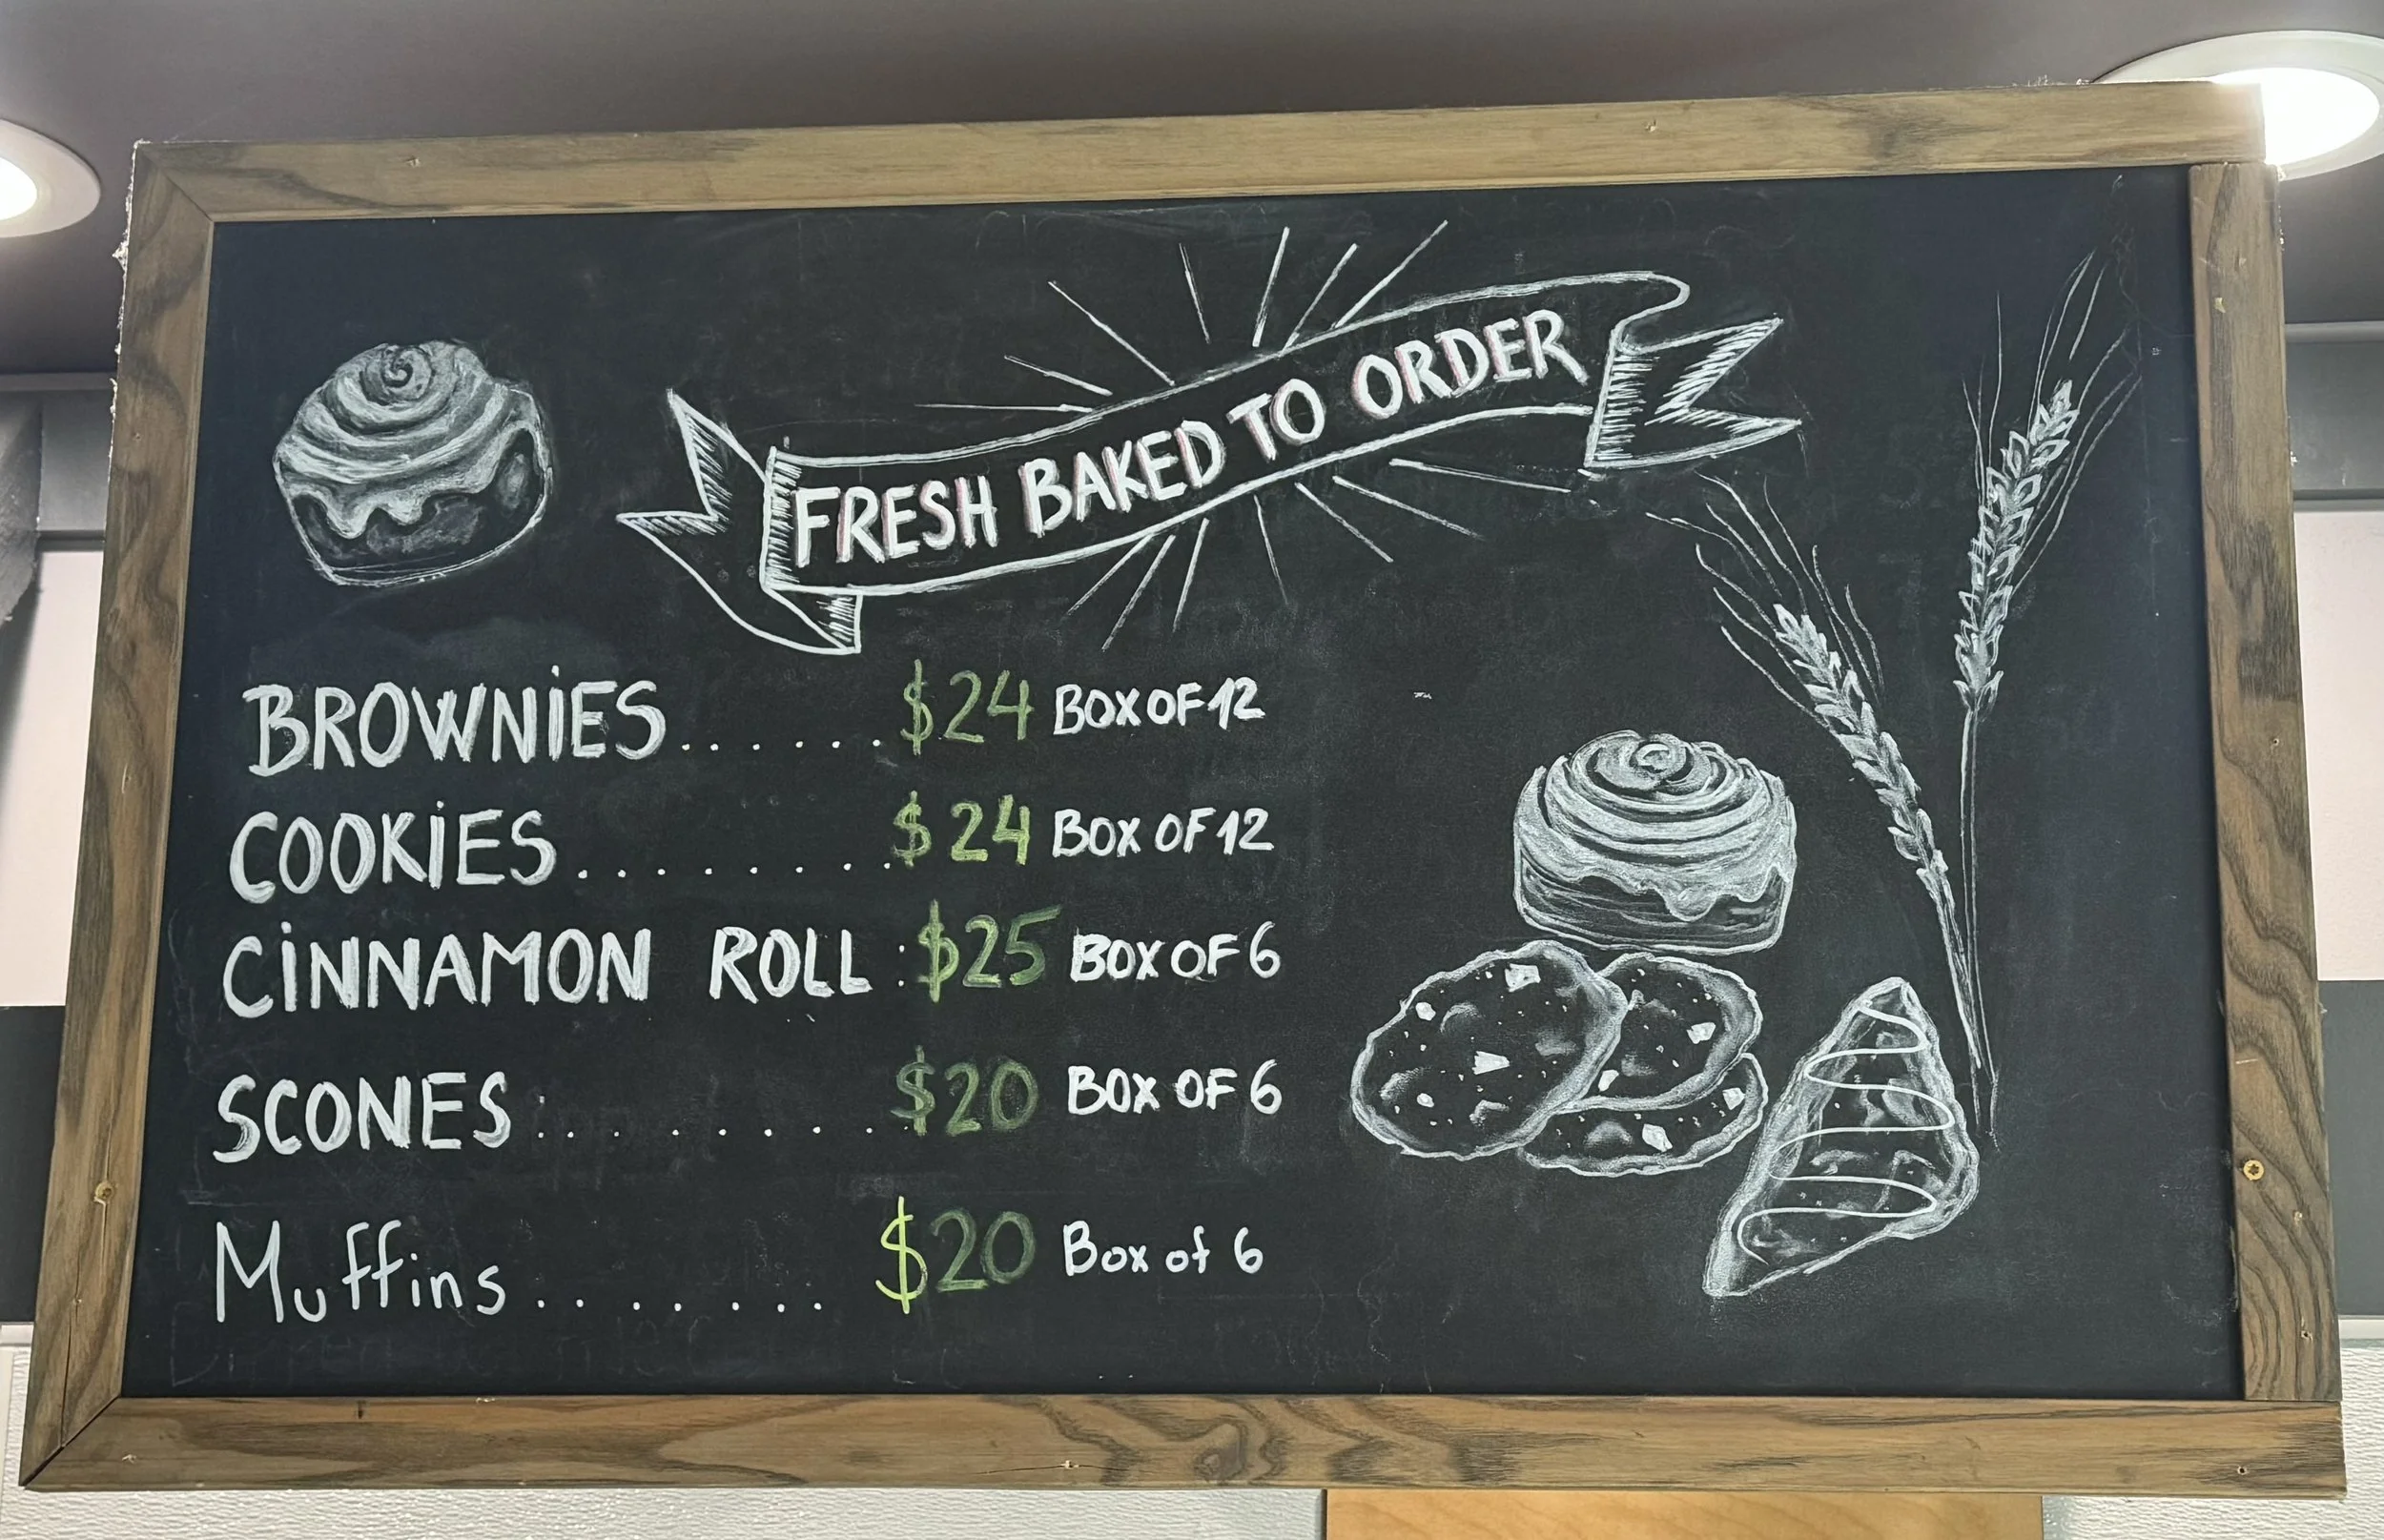 FRESH BAKED TO ORDER
BROWNIES....... $24 BOX OF 12
COOKIES......... $24 BOX OF 12
CINNAMON ROLL : $25 BOX OF 6
SCONES:........ $20 BOX OF 6
Muffins........ $20 Box of 6